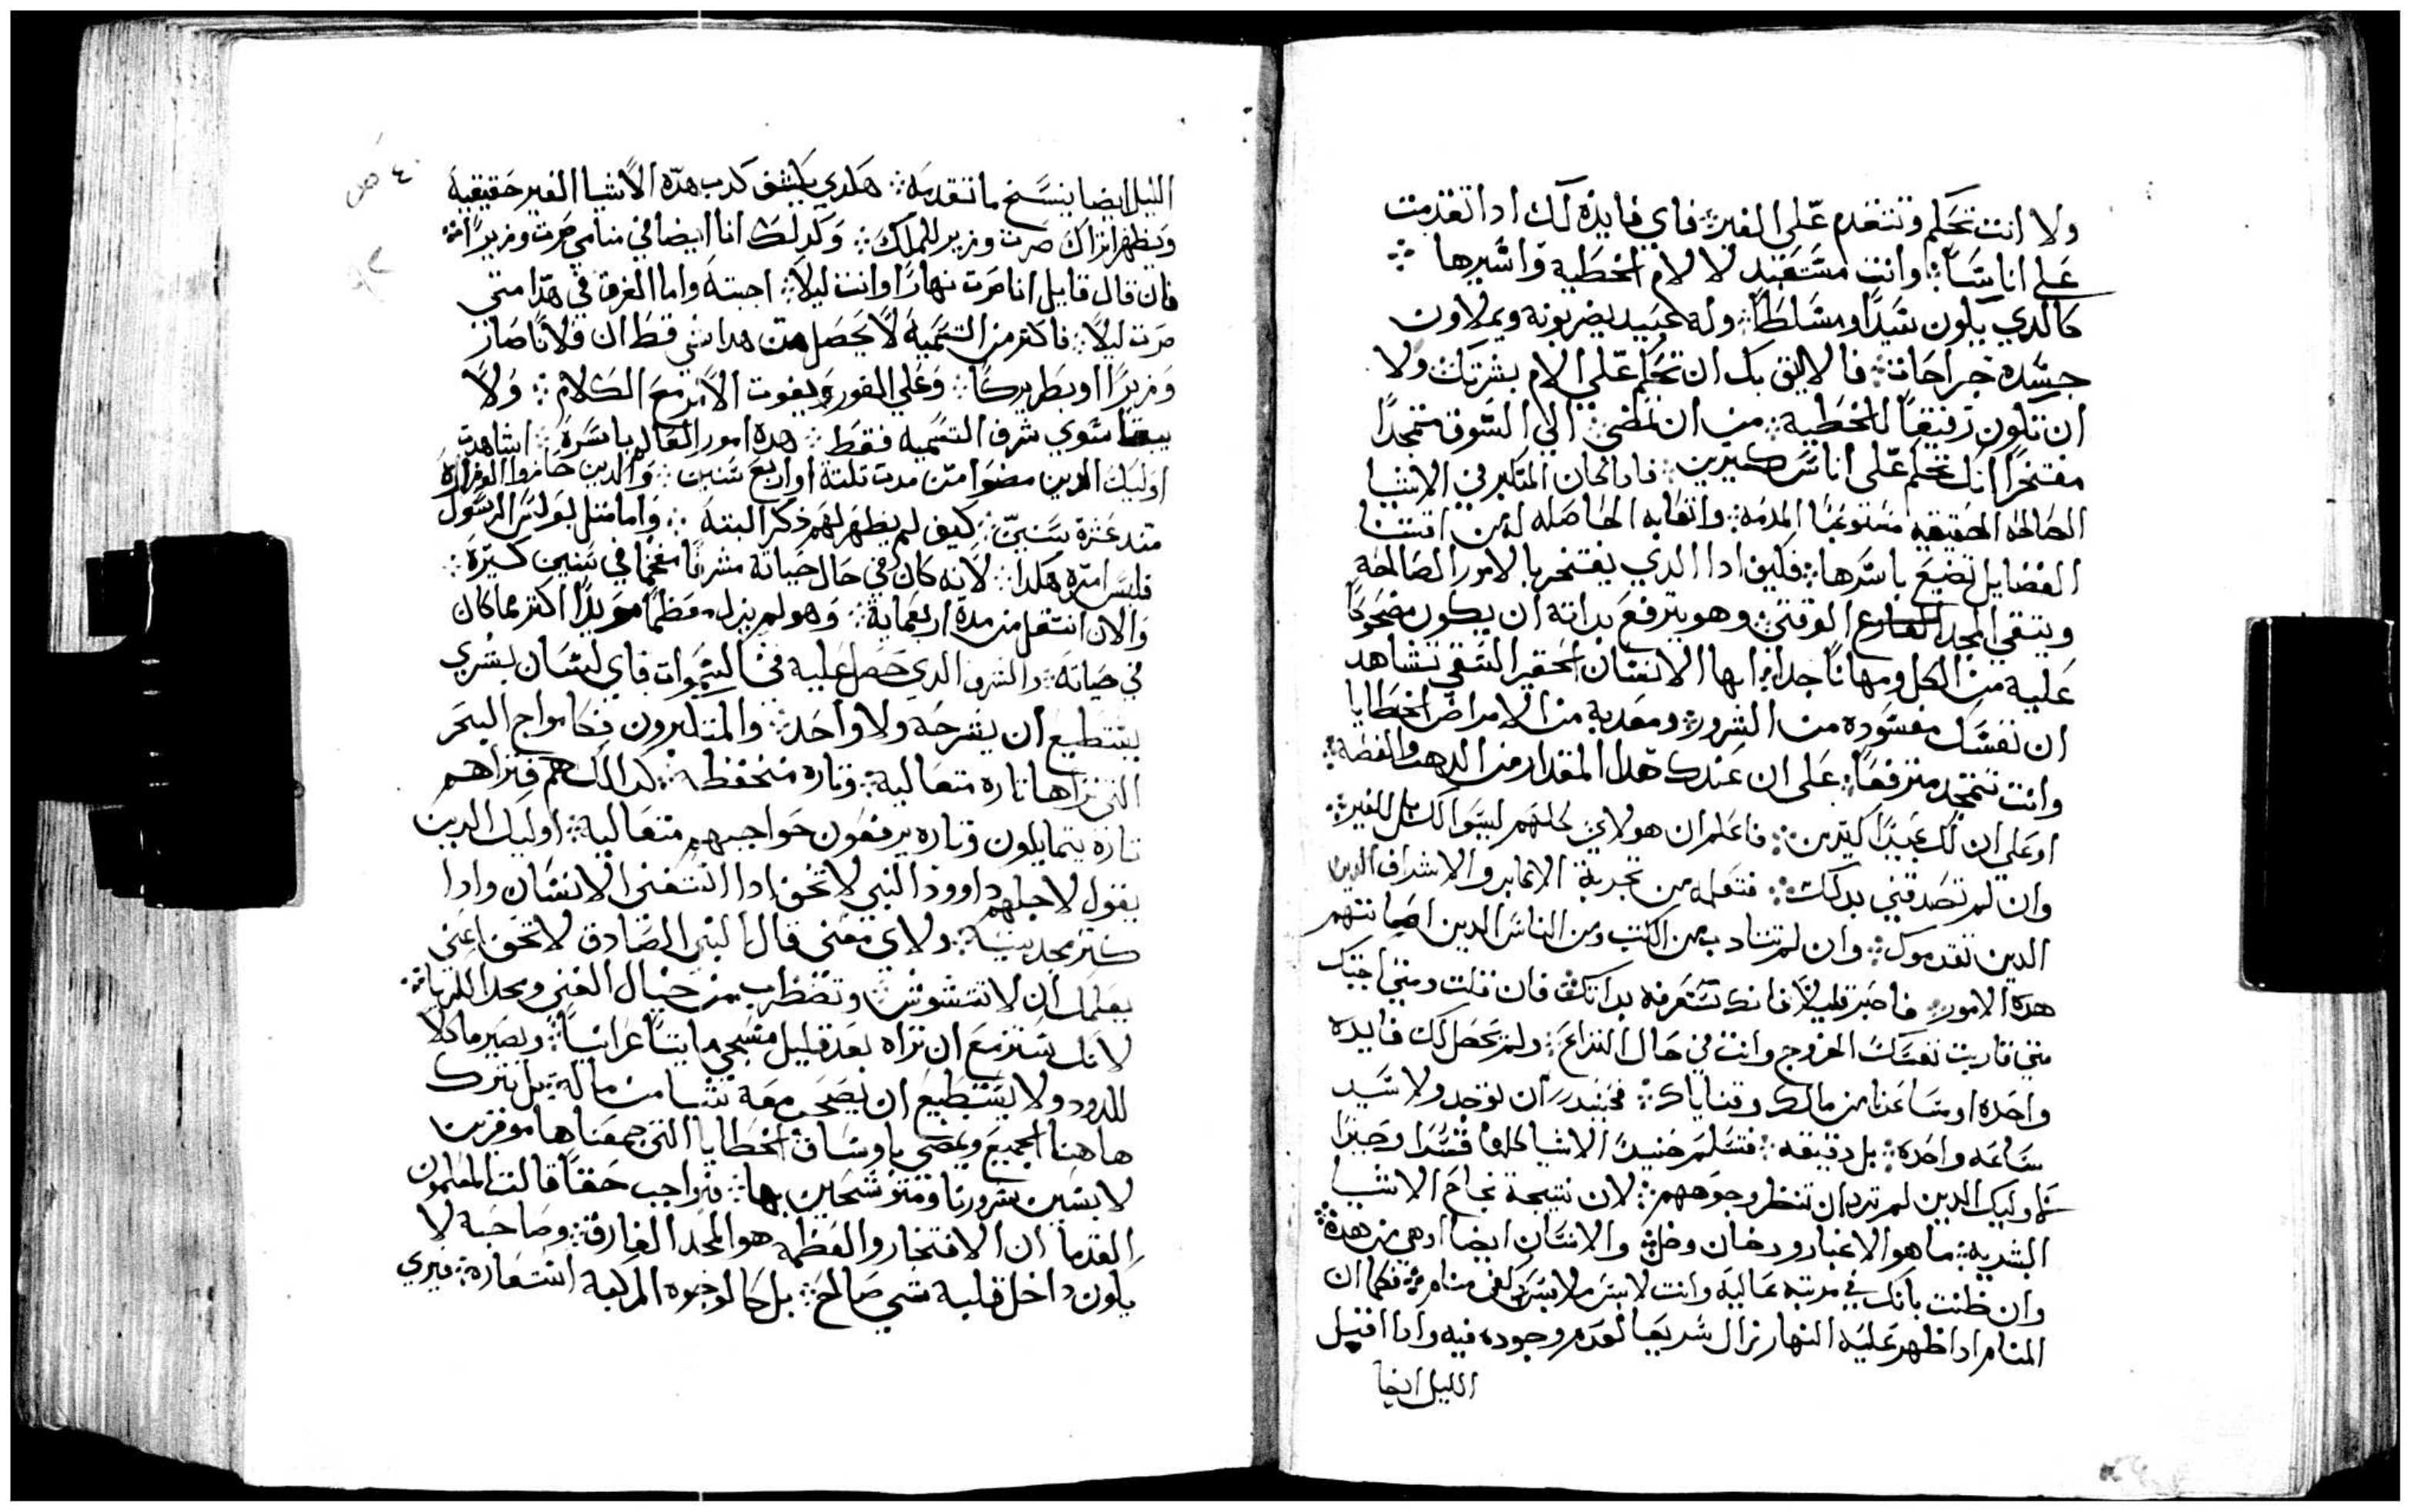 ولا انت تحكم وتتقدم على الغير ፨ فاي فايده لك ادا تقدمت
على اناسًا ፨ وانت مستعبد لالام الخطية واسيرها ፨
كالدي يكون سيدًا ومسلطًا ፨ وله عبيد يضربونه ويملاون
جسده جراحات ፨ فالاليق بك ان تحكم على الام بشرتك ولا
ان تكون رفيقًا للخطية ፨ من ان تمضي الي السوق متمجدًا
مفتخرًا انك تحكم على اناس كتيرين ፨ فادا كان المتكبر في الاشيا
الصالحه الحقيقه مستوعبًا المدمه ፨ واتعابه الحاصله له من اقتنا
الفضايل تضيع باسرها ፨ فكيف ادا الدي يفتخر بالامور الصالحه
ويتقي المجد الفارغ الوقتي ፨ وهو يترفع بداته ان يكون مضحوكًا
عليه من الكل ومهانًا جدا ፨ ايها الانسان الحقير الشقي تشاهد
ان نفسك مفسوده من الشرور ፨ ومعدبة من الامراض الخطايا
وانت تتمجد مترفعًا ፨ على ان عندك هدا المقدار من الدهب والفضه ፨
او على ان لك عبيدًا كتيرين ፨ فاعلم ان هولاي كلهم ليسوا لك بل للغير ፨
وان لم تصدقني بدلك ፨ فتعلمه من تجربة الاكابر والاشراف الدين
الدين تقدموك ፨ وان لم تتادب من الكتب ومن الناس الدين اصابتهم
هده الامور ፨ فاصبر قليلًا فانك ستعرفه بداتك ፨ فان قلت ومتي اجبتك
متي قاربت نفسك الخروج وانت في حال النزاع ፨ ولم يحصل لك فايده
واحده او ساعدنا من مالك وقناياك ፨ فحينيد ان توجد ولا سيد
ساعه واحده ፨ بل دقيقه ፨ فتسلم حنيد الاشيا كلها قسرًا وجبرًا
لاوليك الدين لم ترد ان تنظر وجوههم ፨ لان نتيجة نجاح الاشيا
البشريه ፨ ما هو الا غبار ودخان وظل ፨ والانسان ايضا ادهي من هده ፨
وان ظنت بانك في مرتبه عاليه وانت لابس ملابس في منام ፨ فكما ان
المنام ادا ظهر عليه النهار زال سريعا لعدم وجوده فيه وادا اقبل
الليل ايضا
٤٠ ص
الليل ايضا ينسخ ما تقدمه ፨ هكدي يكشف كدب هده الاشيا الغير حقيقية
ويظهر انك صرت وزير للملك ፨ وكدلك انا ايضا في منامي صرت وزيرًا ፨
فان قال قايل انا صرت نهارًا وانت ليلًا ፨ اجبته واما الفرق في هدا متي
صرت ليلًا ፨ فاكتر من التسمية لا يحصل من هدا شي قط ان فلانًا صار
وزيرًا او بطريركًا ፨ وعلي الفور ويفوت الامر مع الكلام ፨ ولا
يبقا سوي شرف التسميه فقط ፨ هده امور العالم باسره ፨ اشاهدت
اوليك الدين مضوا من مدت تلتة او اربع سنين ፨ والدين حازوا الوزاره
مند عشرة سنين ፨ كيف لم يظهر لهم ذكر البته ፨ واما متل بولس الرسول
فليس امره هكدا ፨ لانه كان في حال حياته مشرفًا مفخمًا في سنين كتيره ፨
والان انتقل من مدة اربعماية ፨ وهو لم يزل معظمًا مويدًا اكتر مما كان
في حياته ፨ والشرف الدي حصل عليه في السموات فاي لسان بشري
يستطيع ان يشرحه ولا واحد ፨ والمتكبرون فكامواج البحر
التي تراها تاره متعالية ፨ وتاره منخفظه ፨ كدالك هم فتراهم
تارة يتمايلون وتاره يرفعون حواجبهم متعالية ፨ اوليك الدين
يقول لاجلهم داوود النبي لا تخف ادا استغني الانسان وادا
كتر مجد بيته ፨ ولاي معني قال النبي الصادق لا تخف اعني
يعلمك ان لا تتشوش ፨ وتضطرب من خيال الغني ومجد الكبريا ፨
لانك ستزمع ان تراه بعد قليل مسجي مايتًا عرانيًا ፨ ويصير ماكلًا
للدود ولا يستطيع ان يصحب معه شيا من ماله ፨ بل يترك
هاهنا الجميع ويمضي باوساق الخطايا التي جمعناها موفرين
لابسين شرورنا ومتوشحين بها ፨ فبواجب حقًا قالت المعلمون
القدما ان الافتخار والعظمه هو المجد الفارق ፨ وصاحبه لا
يكون داخل قلبه شي صالح ፨ بل كالوجوه المركبه استعاره ፨ فيري